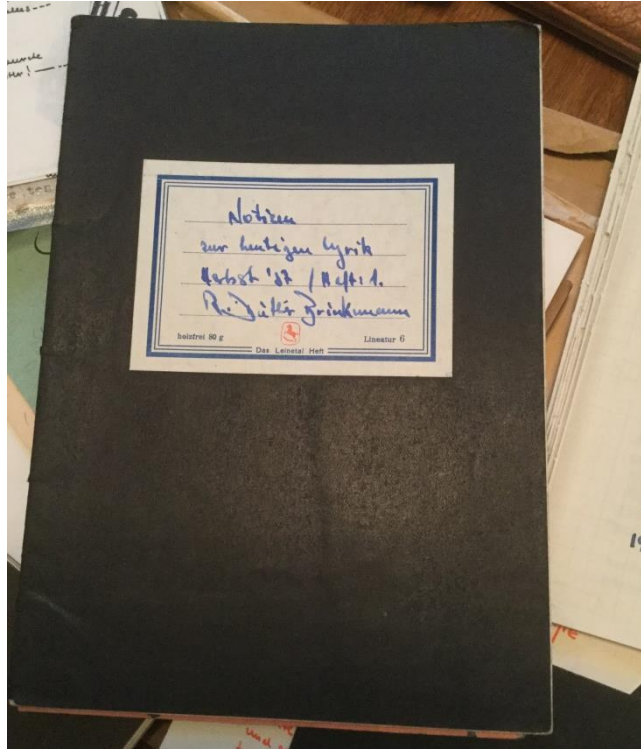 Notizen
zur heutigen Lyrik
Herbst '57 / Heft: 1.
R. Dieter Brinkmann
holzfrei 80 g
Lineatur 6
Das Leinetal Heft
19
und